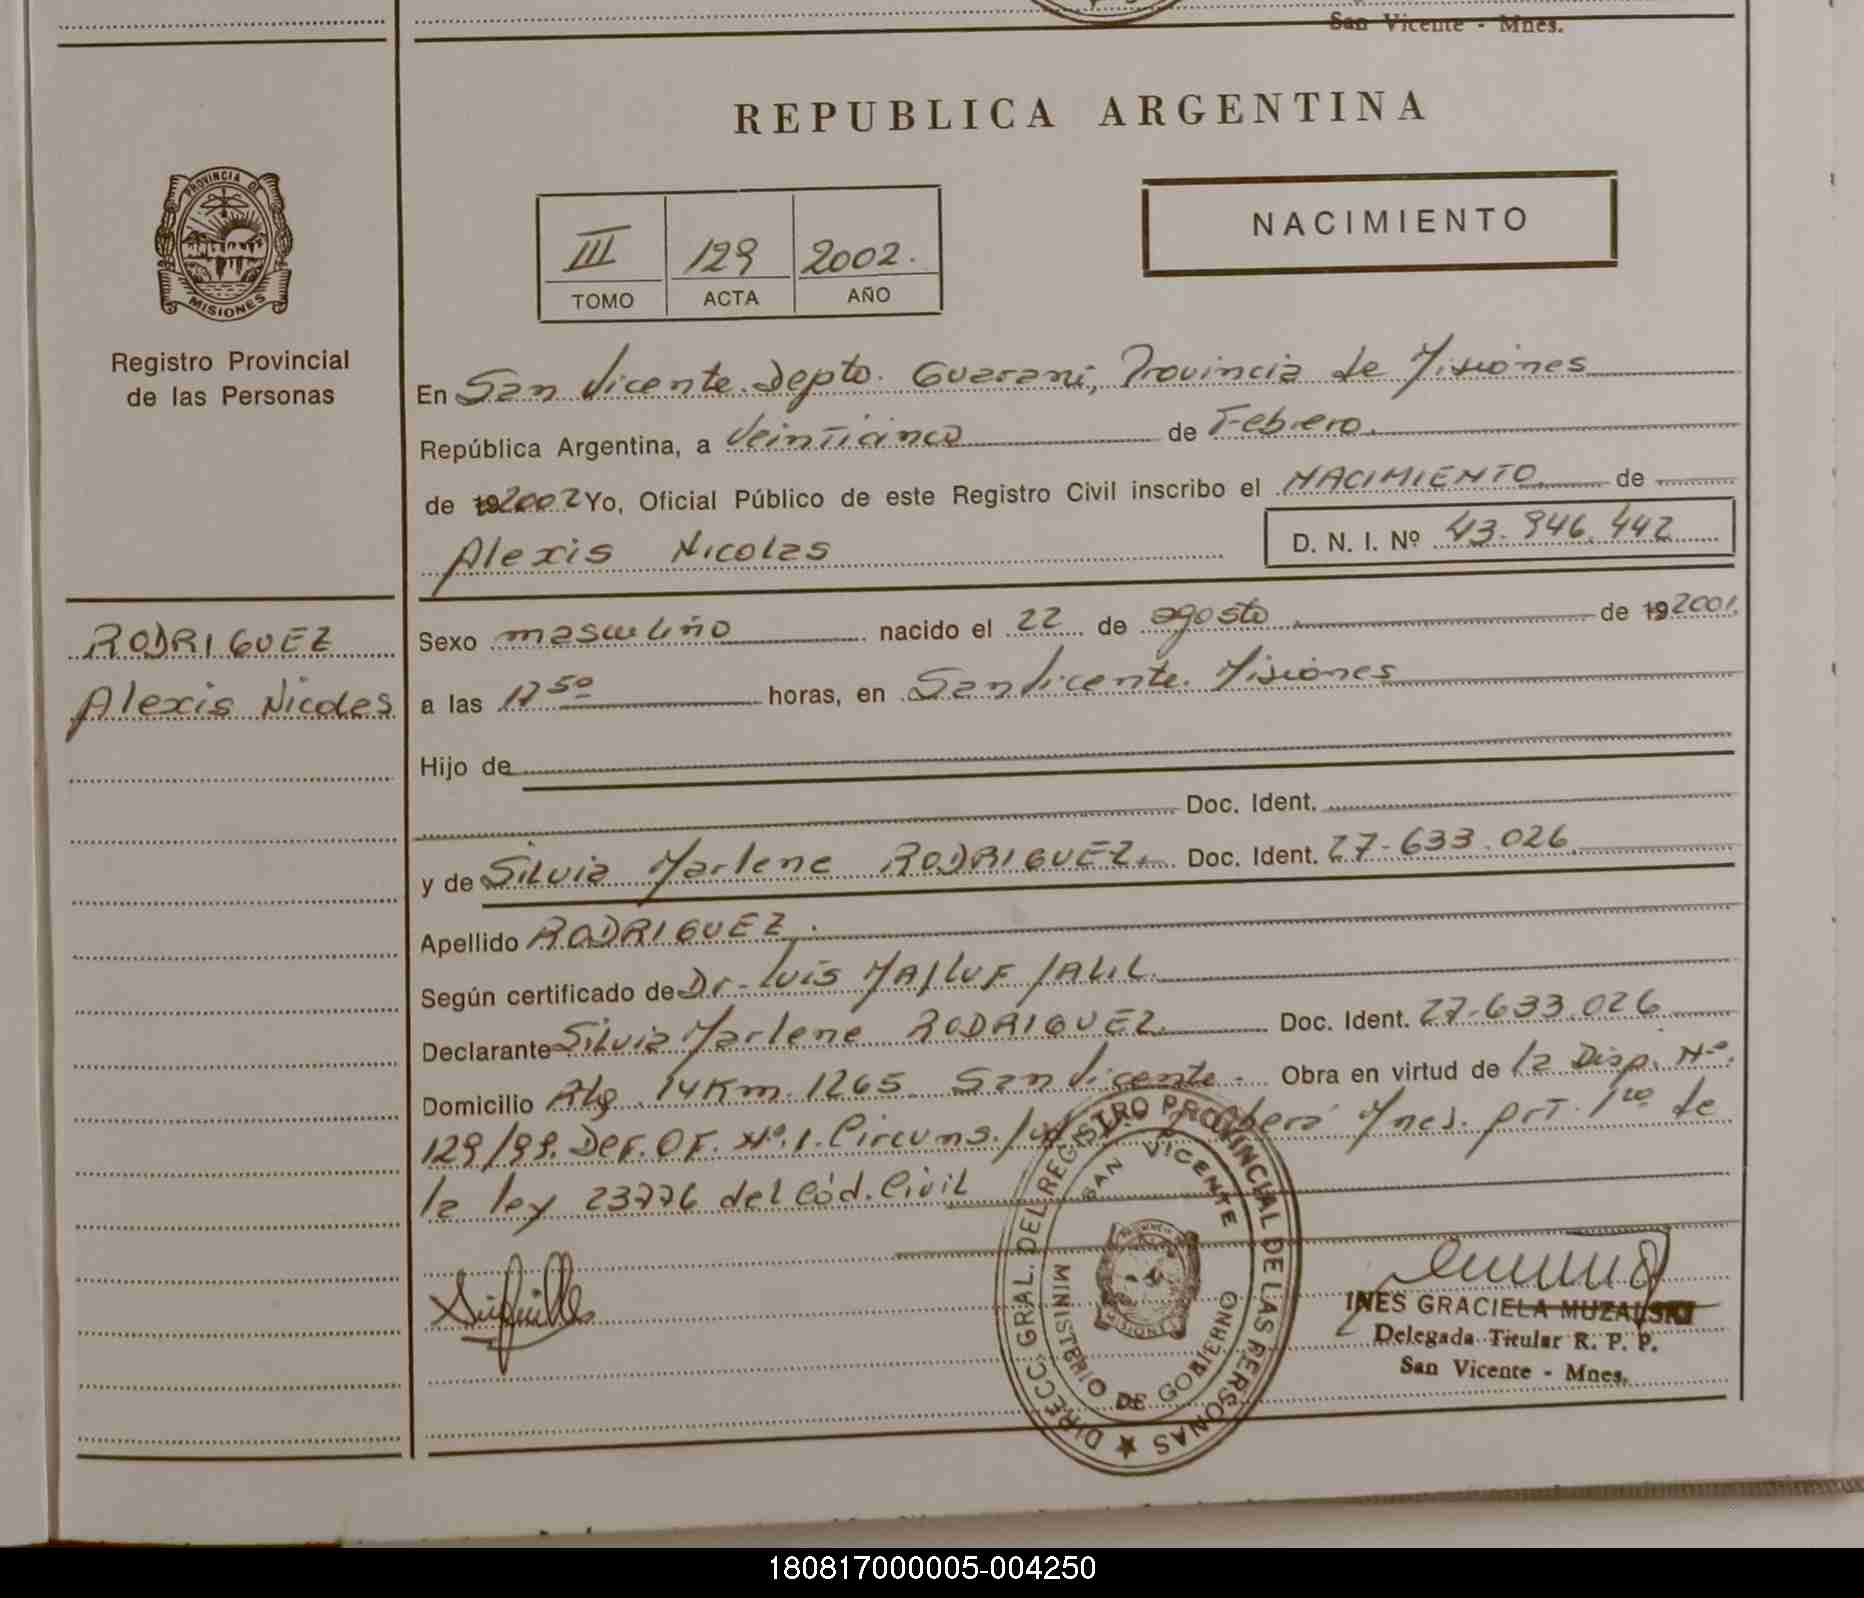 San Vicente - Mnes.
REPUBLICA ARGENTINA
PROVINCIA DE
MISIONES
Registro Provincial
de las Personas
III 129 2002.
TOMO ACTA AÑO
NACIMIENTO
En San Vicente. Depto. Guarani, Provincia de Misiones
República Argentina, a Veinticinco de Febrero.
de 192002 Yo, Oficial Público de este Registro Civil inscribo el NACIMIENTO de
Alexis Nicolas D. N. I. Nº 43.946.442
RODRIGUEZ
Alexis Nicolas
Sexo masculino nacido el 22 de agosto de 192001.
a las 1250 horas, en San Vicente. Misiones
Hijo de
Doc. Ident.
y de Silvia Marlene RODRIGUEZ. Doc. Ident. 27-633.026
Apellido RODRIGUEZ.
Según certificado de Dr. Luis
Declarante Silvia Marlene RODRIGUEZ Doc. Ident. 27-633.026
Domicilio 14 Km. 1265 San Vicente - Obra en virtud de la Disp. Nº
129/99. Def. Of. Nº.1. Circuns. Mnes. Art. 1ro de
la ley 23776 del Cód. Civil
DIRECC. GRAL. DEL REGISTRO PROVINCIAL DE LAS PERSONAS
SAN VICENTE
MINISTERIO DE GOBIERNO
INES GRACIELA MUZALSKI
Delegada Titular R. P. P.
San Vicente - Mnes.
180817000005-004250